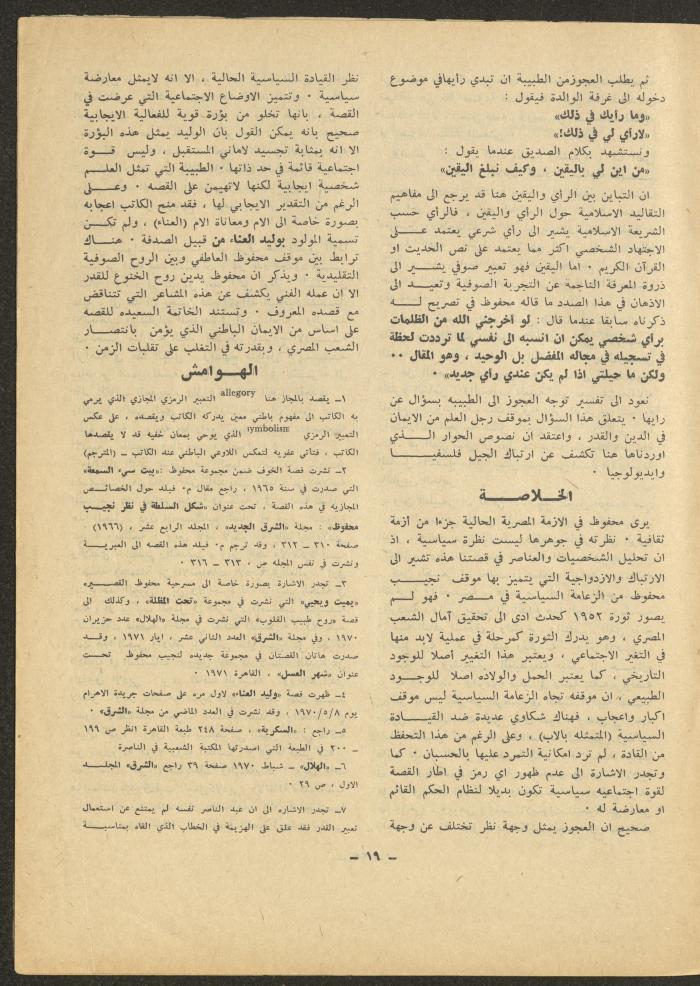 ثم يطلب العجوزمن الطبيبة ان تبدي رأيهافي موضوع
دخوله الى غرفة الوالدة فيقول :
«وما رأيك في ذلك»
«لارأي لي في ذلك!»
ونستشهد بكلام الصديق عندما يقول :
«من اين لي باليقين ، وكيف نبلغ اليقين»
ان التباين بين الرأي واليقين هنا قد يرجع الى مفاهيم
التقاليد الاسلامية حول الرأي واليقين ، فالرأي حسب
الشريعة الاسلامية يشير الى رأي شرعي يعتمد عـــلى
الاجتهاد الشخصي اكثر مما يعتمد على نص الحديث او
القرآن الكريم ٠ اما اليقين فهو تعبير صوفي يشـــير الى
ذروة المعرفة الناجمة عن التجربة الصوفية وتعيـــد الى
الاذهان في هذا الصدد ما قاله محفوظ في تصريح لـــه
ذكرناه سابقا عندما قال : لو أخرجني الله من الظلمات
برأي شخصي يمكن ان انسبه الى نفسي لما ترددت لحظة
في تسجيله في مجاله المفضل بل الوحيد ، وهو المقال ٠٠
ولكن ما حيلتي اذا لم يكن عندي رأي جديد» ٠
نعود الى تفسير توجه العجوز الى الطبيبه بسؤال عن
رايها ٠ يتعلق هذا السؤال بموقف رجل العلم من الايمان
في الدين والقدر ، واعتقد ان نصوص الحوار الـــذي
اوردناها هنا تكشف عن ارتباك الجيل فلسفيـــا
وايديولوجيا ٠
الخلاصـــة
يرى محفوظ في الازمة المصرية الحالية جزءا من أزمة
ثقافية ٠ نظرته في جوهرها ليست نظرة سياسية ، اذ
ان تحليل الشخصيات والعناصر في قصتنا هذه تشير الى
الارتباك والازدواجية التي يتميز بها موقف نجيـــب
محفوظ من الزعامة السياسية في مـــصر ٠ فهو لـــم
يصور ثورة ١٩٥٢ كحدث ادى الى تحقيق آمال الشعب
المصري ، وهو يدرك الثورة كمرحلة في عملية لابد منها
في التغير الاجتماعي ، ويعتبر هذا التغيير أصلا للوجود
التاريخي ، كما يعتبر الحمل والولاده اصلا للوجـــود
الطبيعي ، ان موقفه تجاه الزعامة السياسية ليس موقف
اكبار واعجاب ، فهناك شكاوي عديدة ضد القيـــادة
السياسية (المتمثله بالاب) ، وعلى الرغم من هذا التحفظ
من القادة ، لم ترد امكانية التمرد عليها بالحسبان ٠ كما
وتجدر الاشارة الى عدم ظهور اي رمز في اطار القصة
لقوة اجتماعيه سياسية تكون بديلا لنظام الحكم القائم
او معارضة له ٠
صحيح ان العجوز يمثل وجهة نظر تختلف عن وجهة
نظر القيادة السياسية الحالية ، الا انه لايمثل معارضة
سياسية ٠ وتتميز الاوضاع الاجتماعية التي عرضت في
القصة ، بانها تخلو من بؤرة قوية للفعالية الايجابية
صحيح بانه يمكن القول بان الوليد يمثل هذه البؤرة
الا انه بمثابة تجسيد لاماني المستقبل ، وليس قـــوة
اجتماعية قائمة في حد ذاتها ٠ الطبيبة التي تمثل العلـــم
شخصية ايجابية لكنها لاتهيمن على القصه ٠ وعـــلى
الرغم من التقدير الايجابي لها ، فقد منح الكاتب اعجابه
بصورة خاصة الى الام ومعاناة الام (العناء) ، ولم تكـــن
تسمية المولود بوليد العناء من قبيل الصدفة ٠ هنـــاك
ترابط بين موقف محفوظ العاطفي وبين الروح الصوفية
التقليدية ٠ ويذكر ان محفوظ يدين روح الخنوع للقدر
الا ان عمله الفني يكشف عن هذه المشاعر التي تتناقض
مع قصده المعروف ٠ وتستند الخاتمة السعيده للقصه
على اساس من الايمان الباطني الذي يؤمن بانتصـــار
الشعب المصري ، وبقدرته في التغلب على تقلبات الزمن ٠
الهـوامش
١ــ يقصد بالمجاز هنا allegory التعبير الرمزي المجازي الذي يرمي
به الكاتب الى مفهوم باطني معين يدركه الكاتب ويقصده ، على عكس
التعبير الرمزي ymbolism الذي يوحي بمعان خفيه قد لا يقصدها
الكاتب ، فتأتي عفويه لتعكس اللاوعي الباطني عند الكاتب ــ (المترجم)
٢ــ نشرت قصة الخوف ضمن مجموعة محفوظ : «بيت سيء السمعة»
التي صدرت في سنة ١٩٦٥ ، راجع مقال م٠ فيلد حول الخصائـــص
المجازيه في هذه القصة ، تحت عنوان «شكل السلطة في نظر نجيـــب
محفوظ» : مجلة «الشرق الجديد» ، المجلد الرابع عشر ، (١٩٦٦)
صفحة ٣١٠ ــ ٣١٢ ، وقد ترجم م٠ فيلد هذه القصه الى العبريـــة
ونشرت في نفس المجله ص ، ٣١٣ ــ ٣١٦ ٠
٣ــ تجدر الاشارة بصورة خاصة الى مسرحية محفوظ القصـــيره
«يميت ويحيي» التي نشرت في مجموعة «تحت المظلة» ، وكذلك الى
قصة «روح طبيب القلوب» التي نشرت في مجلة «الهلال» عدد حزيران
١٩٧٠ ، وفي مجلة «الشرق» العدد الثاني عشر ، ايار ١٩٧١ ، وقـــد
صدرت هاتان القصتان في مجموعة جديده لنجيب محفوظ تحـــت
عنوان «شهر العسل» ، القاهرة ١٩٧١ ٠
٤ــ ظهرت قصة «وليد العناء» لاول مره على صفحات جريدة الاهرام
يوم ١٩٧٠/٥/٨ ، وقد نشرت في العدد الماضي من مجلة «الشرق» ٠
٥ــ راجع : «السكرية» ، صفحة ٢٤٨ طبعة القاهرة انظر ص ١٩٩
ــ ٢٠٠ في الطبعة التي اصدرتها المكتبة الشعبية في الناصرة
٦ــ «الهلال» ــ شباط ١٩٧٠ صفحة ٣٩ راجع «الشرق» المجلـــد
الاول ، ص ٢٩ ٠
٧ــ تجدر الاشاره الى ان عبد الناصر نفسه لم يمتنع عن استعمال
تعبير القدر فقد علق على الهزيمة في الخطاب الذي القاه بمناسبـــة
ــ ١٩ ــ